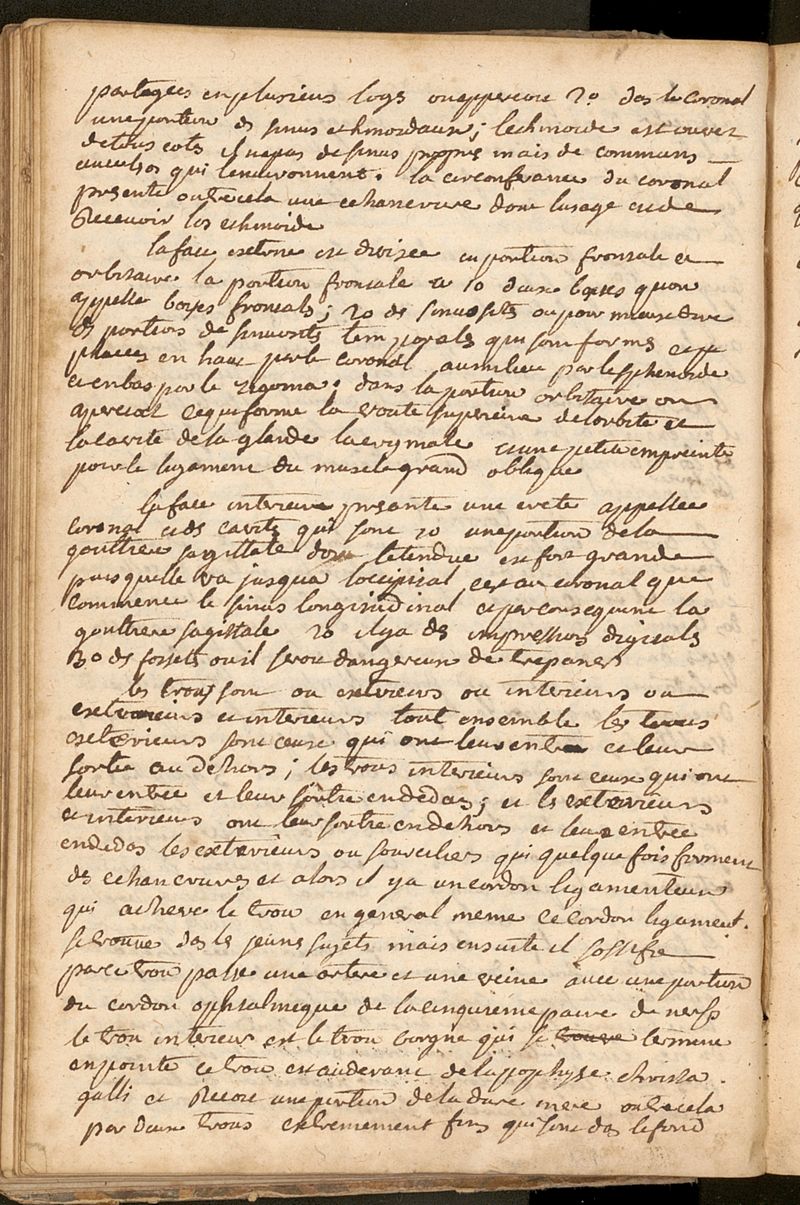 partagees en plusieurs logs on appercoit 20 das le coronal
une portion ds sinus ethmoidaux; lethmoide est ouvert
de tous cots il napas de sinus propres mais de communs
aux los qui lenvironnent. la circonferance du coronal
presente outre cela une echancrure donc lusage est de
Recevoir los ethmoide
la face externe est divisee en portion frontale et
orbitaire la portion frontale a 10 deux bosses quon
appelle bosses frontals; 20 ds sinuosits ou pour mieux dire
ds portions de sinuosits temporals qui sont forms et
placees en haut par le coronal au milieu par le sphenoide
et en bas par le zigoma; dans la portion orbitaire on
apercoit ce qui forme la voute superieure de lorbite et
la cavite de la glande lacrymale et une petite empreinte
pour le ligament du muscle grand oblique
la face interieure presente une crete appellee
coronal et ds cavits qui sont 10 une portion de la
gouttiere sagittale dont letendue est fort grande
puis quelle va jusqua loccipital cest au coronal que
commence le sinus longitudinal et par consequent la
gouttiere sagittale 20 il y a ds impressions digitals
30 ds fossets ou il seroit dangereux de trepaner
les trous sont ou exterieurs ou interieurs ou
exterieurs et interieurs tout ensemble les trous
exterieurs sont ceux qui ont leur entree et leur
sortie au dehors; les trous interieurs sont ceux qui ont
leur entree et leur sortie en dedas; et ls exterieurs
et interieurs ont leur sortie en dehors et leur entree
en dedas les exterieurs ou sourciliers qui quelque fois forment
ds echancrures et alors il y a un cordon ligamenteux
qui acheve le trou en general meme ce cordon ligament.
se trouve das ls jeuns sujets mais ensuite il sossifie
par ce trou passe une artere et une veine avec une portion
du cordon ophtalmique de la cinquieme paire de nerfs
le trou interieur est le trou borgne qui se trouve termine
en pointe ce trou est audevant de lapophyse christa
galli et Recoit une portion de la dure mere outre cela
par deux trous extremement fins qui sont das le fond